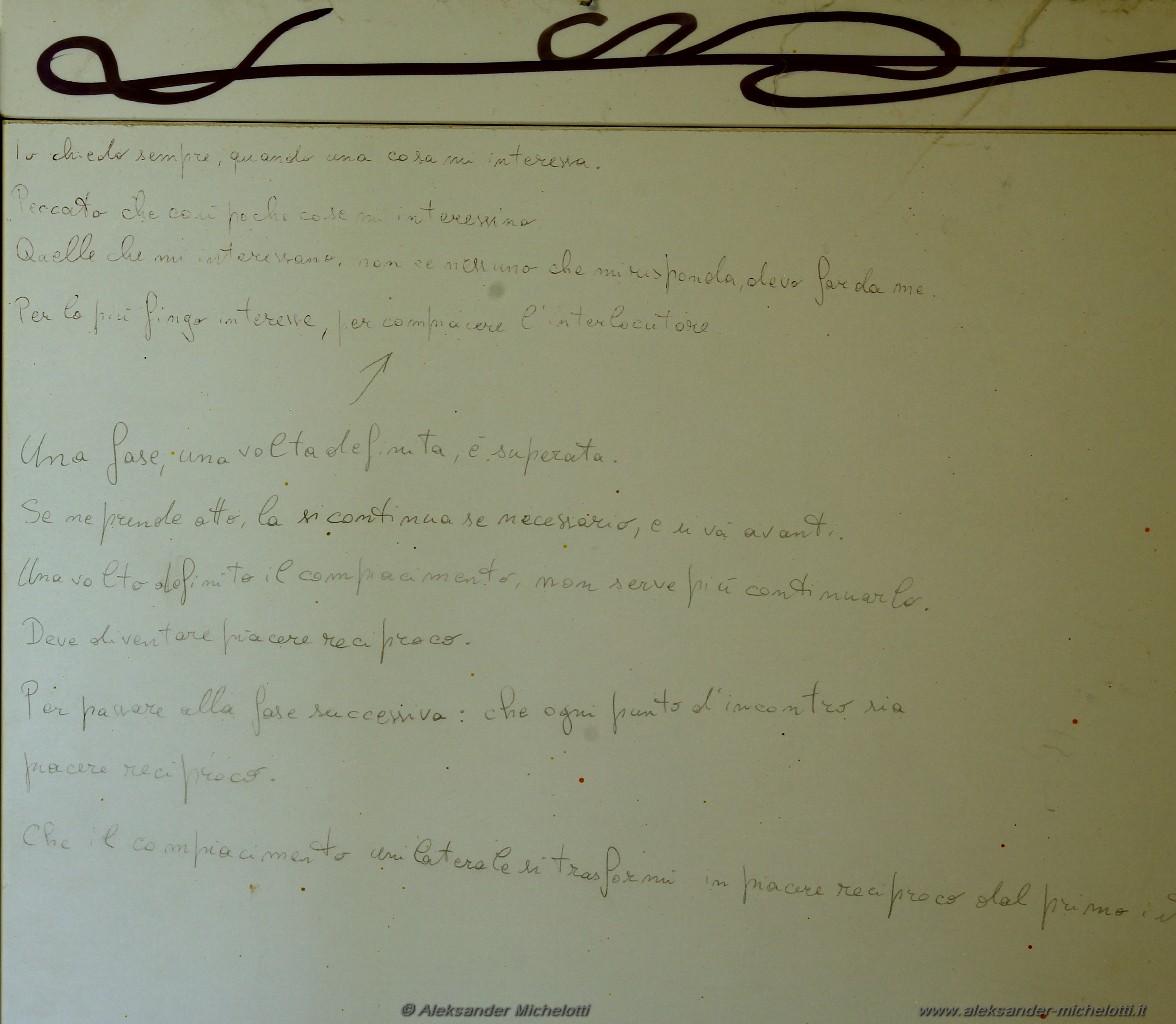 Io chiedo sempre, quando una cosa mi interessa.
Peccato che così poche cose mi interessino
Quelle che mi interessano, non ce nessuno che mi risponda, devo far da me.
Per lo più fingo interesse, per compiacere l'interlocutore
Una fase, una volta definita, è superata.
Se ne prende atto, la si continua se necessario, e si va avanti.
Una volta definito il compiacimento, non serve più continuarlo.
Deve diventare piacere reciproco.
Per passare alla fase successiva: che ogni punto d'incontro sia
piacere reciproco.
Che il compiacimento unilaterale si trasformi in piacere reciproco dal primo
© Aleksander Michelotti
www.aleksander-michelotti.it